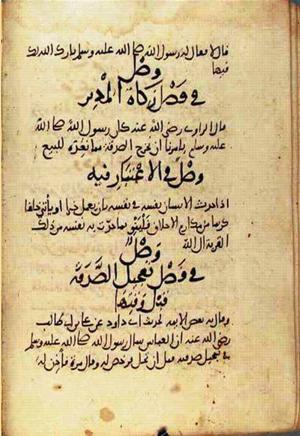 فقال له رسول الله صلى الله عليه وسلم بارك الله لك
فيها
وصل
في فصل زكاة المدبر
قال الراوي رضي الله عنه كان رسول الله صلى الله
عليه وسلم يأمرنا أن نخرج الصدقة مما نعده للبيع
وصل في الاعتبار فيه
اذا حدث الانسان نفسه في نفسه بأن يعمل خيرا او يأتي خلقا
كريما من مكارم الاخلاق فلينو بما حدث به نفسه من ذلك
القربة الى الله
وصل
في فصل تعجيل الصدقة
قبل وقتها
وقال به بعض الائمة لحديث ابي داود عن علي بن ابي طالب
رضي الله عنه ان العباس سأل رسول الله صلى الله عليه وسلم
في تعجيل صدقته قبل ان تحل فرخص له وقال مرة فأذن له